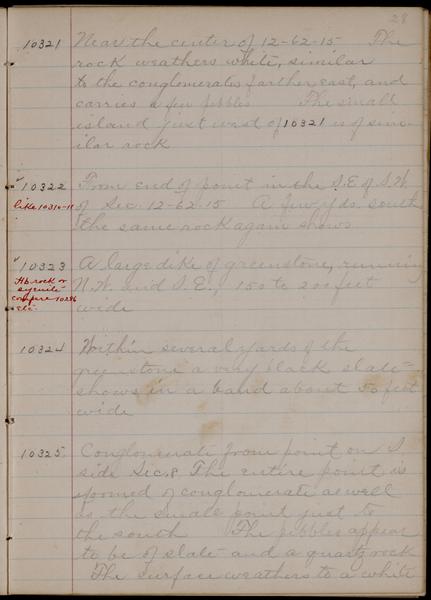 28
10321 Near the center of 12-62-15 The
rock weathers white, similar
to the conglomerates farther east, and
carries a few pebbles The small
island just west of 10321 is of sim-
ilar rock
10322 From end of point in the S.E. of S.W.
like 10310-11 of Sec. 12-62-15 A few yds. south
the same rock again shows
10323 A large dike of greenstone, running
Hb rock or N.W. and S.E., 150 to 200 feet
syenite wide
compare 10286
etc.
10324 Within several yards of the
greenstone a very black slate
shows in a band about 50 feet
wide
10325 Conglomerate from point on S.
side Sec. 8 The entire point is
formed of conglomerate as well
as the small point just to
the south The pebbles appear
to be of slate and a quartz rock
The surface weathers to a white